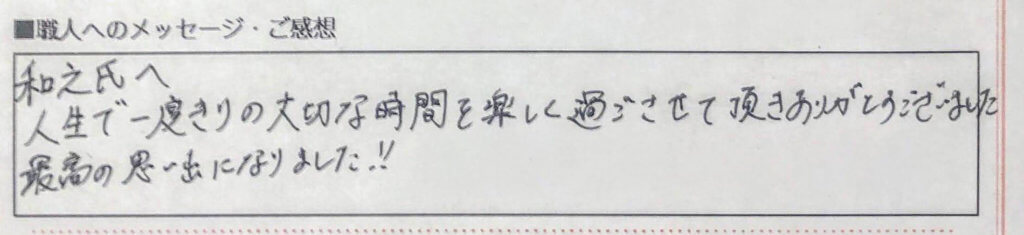 ■職人へのメッセージ・ご感想
和之氏へ
人生で一度きりの大切な時間を楽しく過ごさせて頂きありがとうございました
最高の思い出になりました!!